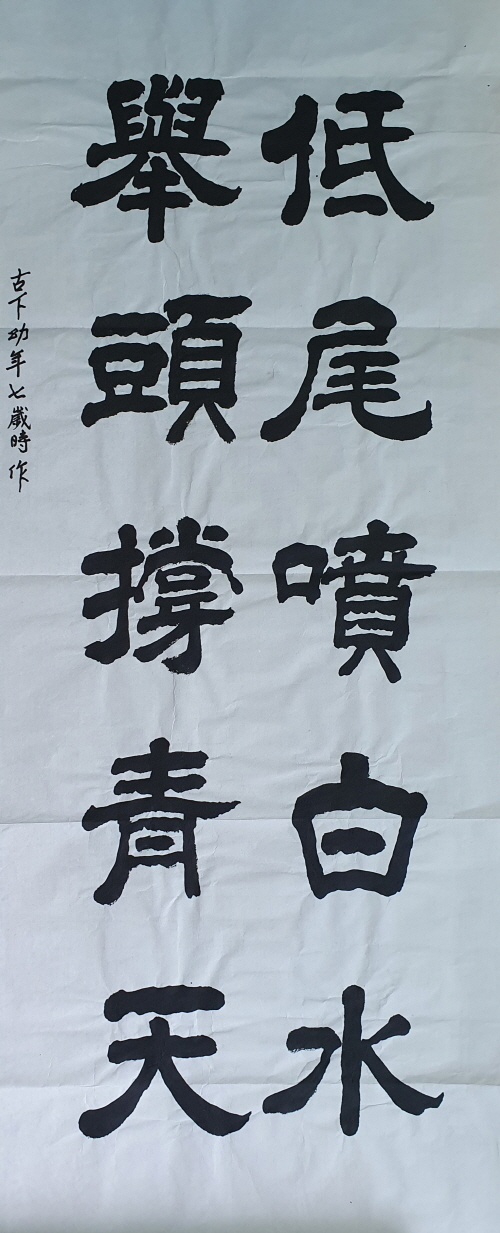 低尾噴白水
舉頭撐青天
古下幼年七歲時作